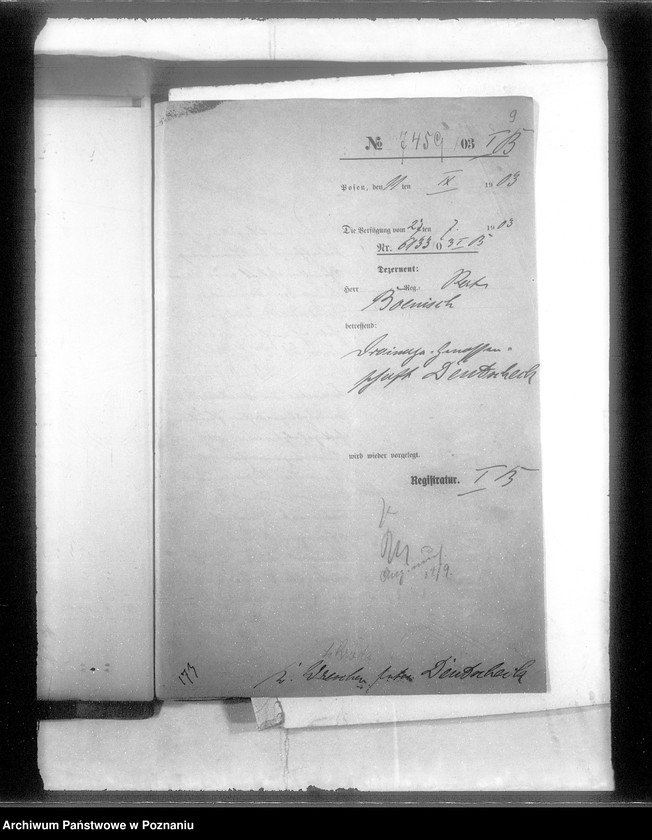 9
№ 7459/03 I B
Posen, den 11 ten IX 1903
Die Verfügung vom 27 ten 7. 1903
Nr. 6133/03 I B
Dezernent:
Herr Reg. Rat
Boenisch
betreffend:
Drainage-Genossen-
schaft Deutscheck
wird wieder vorgelegt.
Registratur. I B
12/9.
173
Wreschen Deutscheck
Archiwum Państwowe w Poznaniu